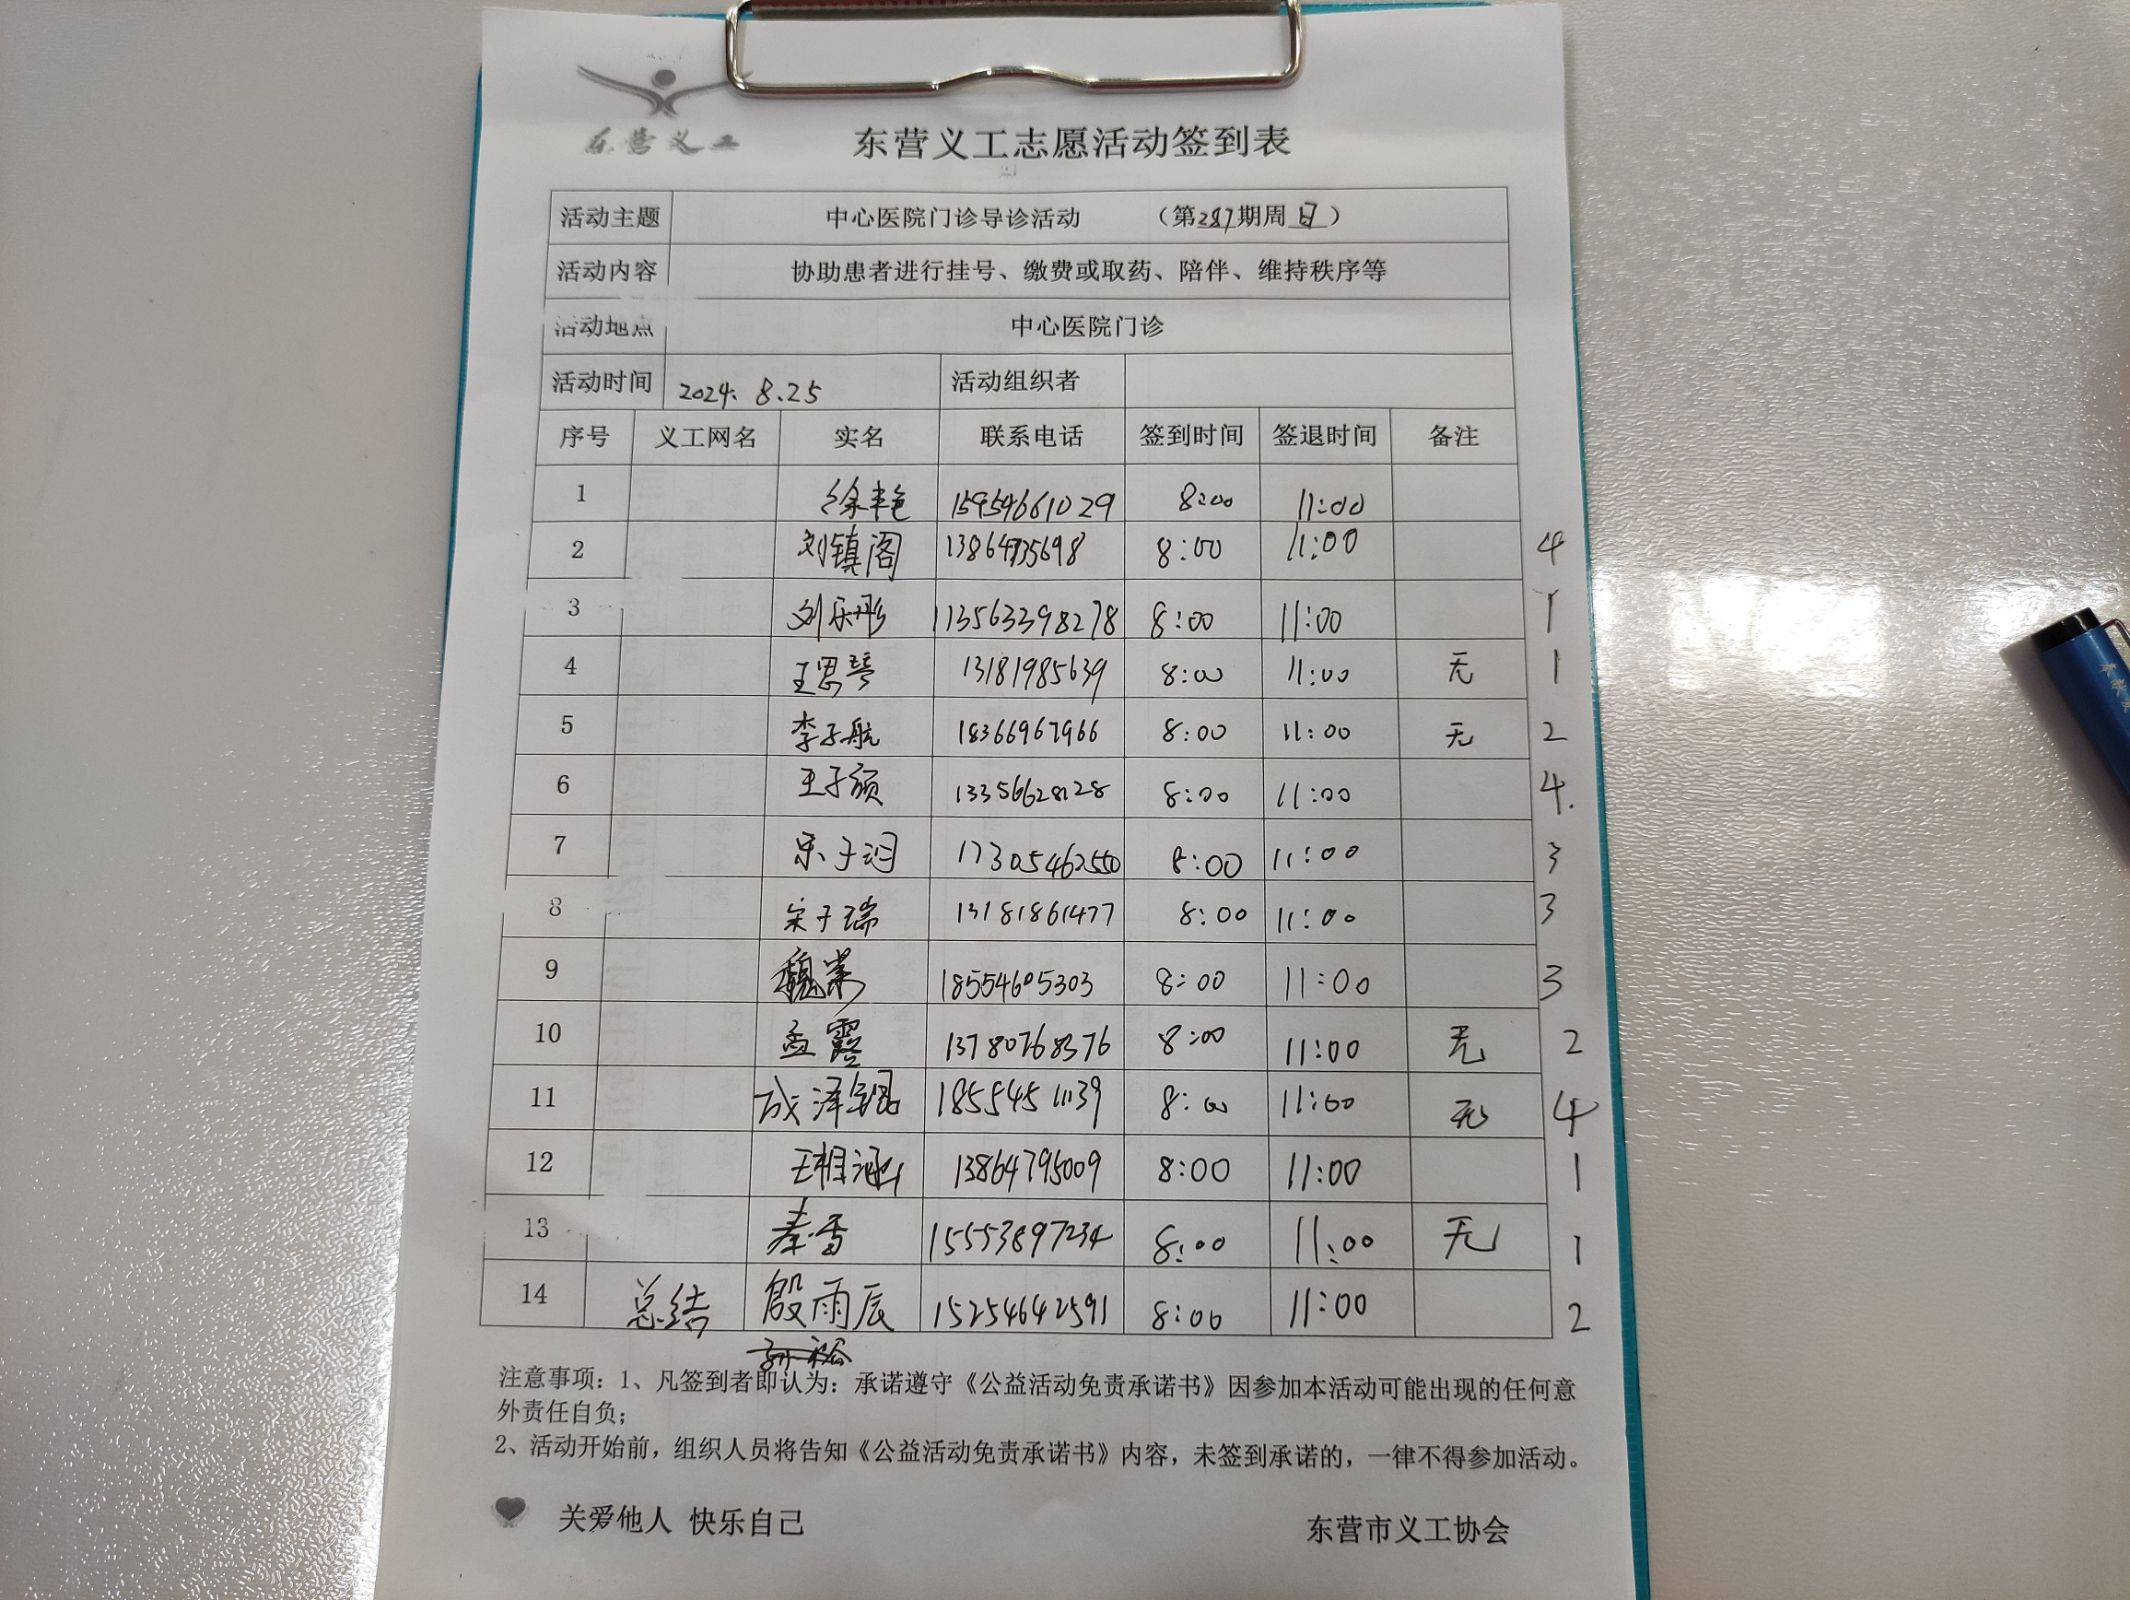 东营义工
东营义工志愿活动签到表
活动主题 中心医院门诊导诊活动 （第287期周日）
活动内容 协助患者进行挂号、缴费或取药、陪伴、维持秩序等
活动地点 中心医院门诊
活动时间 2024. 8.25 活动组织者
序号 义工网名 实名 联系电话 签到时间 签退时间 备注
1 徐丰艳 15954661029 8:00 11:00
2 刘镇阁 13864735698 8:00 11:00 4
3 刘乐彤 113563398278 8:00 11:00 1
4 王思 13181985639 8:00 11:00 无 1
5 李子航 18366967966 8:00 11:00 无 2
6 王子硕 13356628128 8:00 11:00 4.
7 子 17305462550 8:00 11:00 3
8 宋子瑞 13181861477 8:00 11:00 3
9 魏 18554605303 8:00 11:00 3
10 孟露 13780768376 8:00 11:00 无 2
11 成泽锟 18554511139 8:00 11:00 无 4
12 王相涵 13864795009 8:00 11:00 1
13 秦雪 15553897234 8:00 11:00 无 1
14 总结 殷雨辰 15254642591 8:00 11:00 2
注意事项：1、凡签到者即认为：承诺遵守《公益活动免责承诺书》因参加本活动可能出现的任何意
外责任自负；
2、活动开始前，组织人员将告知《公益活动免责承诺书》内容，未签到承诺的，一律不得参加活动。
关爱他人 快乐自己
东营市义工协会